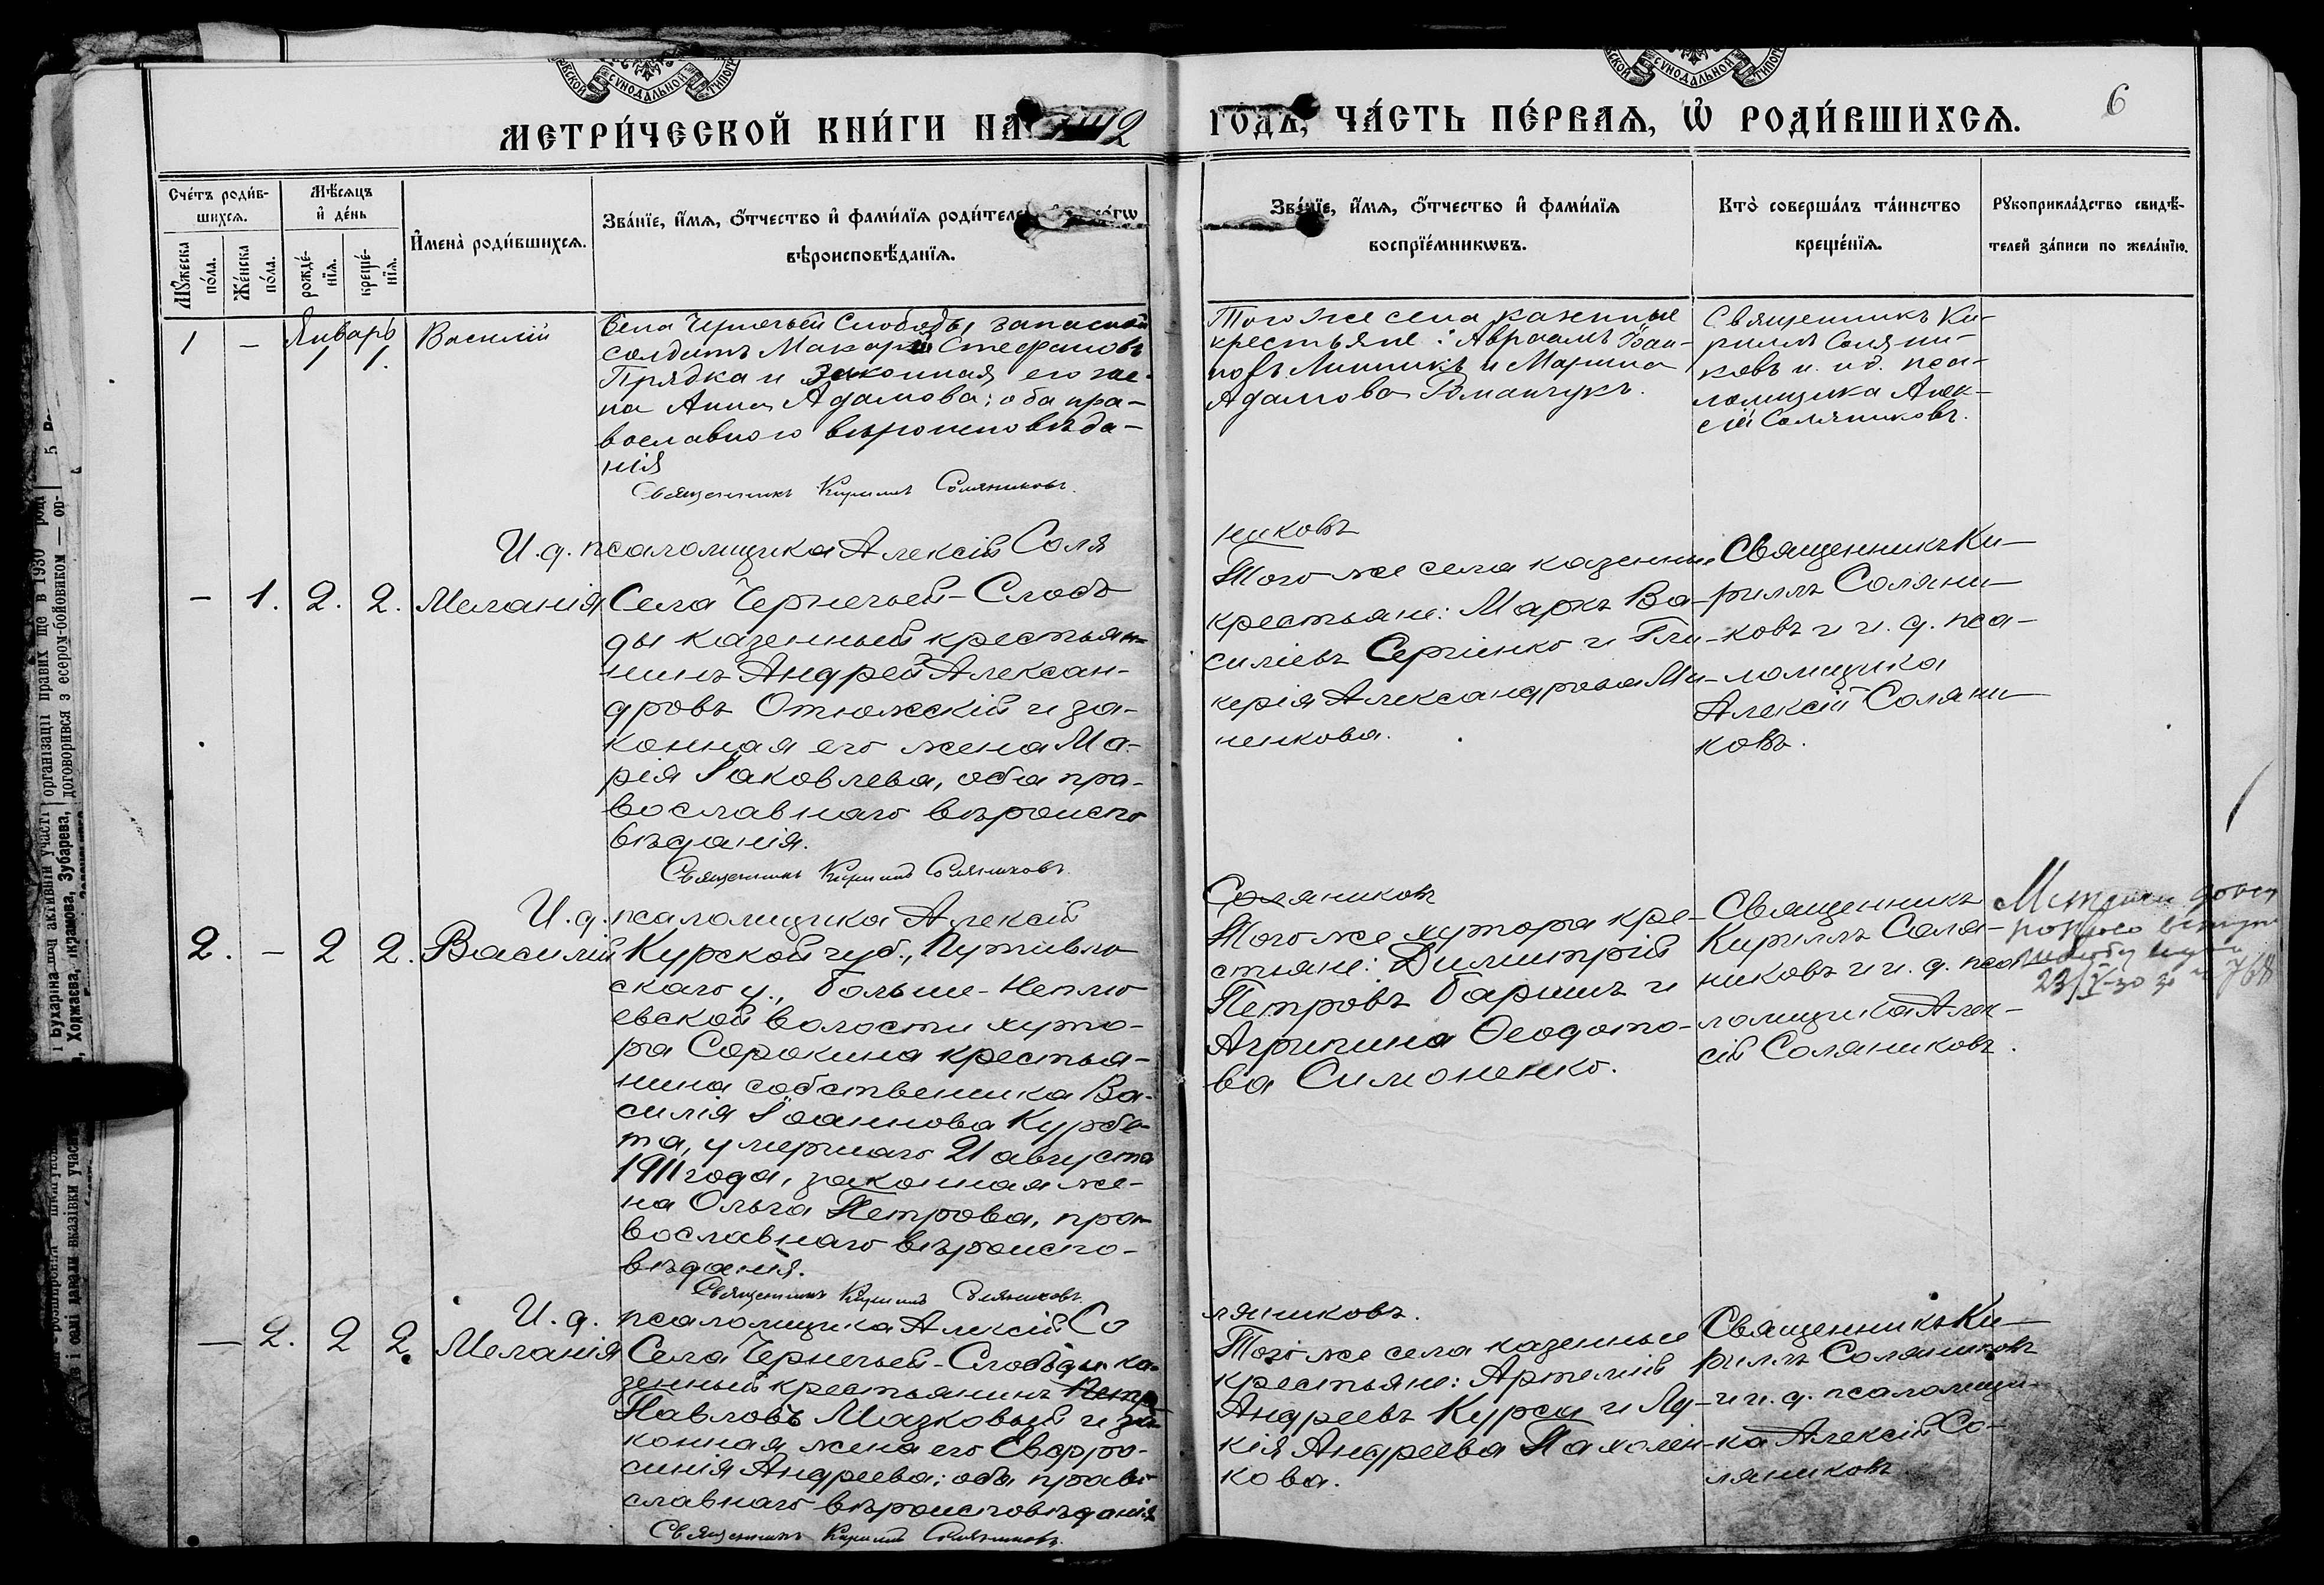 МЕТРИ́ЧЕСКОЙ КНИ́ГИ НА 12
ГОДЪ, ЧА́СТЬ ПЕ́РВАЯ, Ѡ РОДИ́ВШИХСЯ.
6
Сче́тъ роди́в-
шихся.
Мѣ́сяцъ
и де́нь
Му́жеска
по́ла.
Же́нска
по́ла.
рожде́-
нїя.
креще́-
нїя.
И́мена роди́вшихся.
Зва́нїе, и́мя, о́тчество и фами́лїя роди́телей
вѣроисповѣ́данїя.
Зва́нїе, и́мя, о́тчество и фами́лїя
воспрїе́мниковъ.
Кто̀ соверша́лъ та́инство
креще́нїя.
Рукоприкла́дство свидѣ́-
телей за́писи по жела́нїю.
1 - Январь 1 1. Василій
Села Чернечьей Слободы запасной
солдатъ Макарій Стефановъ
Прядка и законная его же-
на Анна Адамова; оба пра-
вославного вѣроисповѣда-
нія
Священникъ Кириллъ Соляниковъ.
Того же села казенные
крестьяне: Авраамъ Іоан-
новъ Линникъ и Марина
Адамова Романчукъ.
Священникъ Ки-
риллъ Соляни-
ковъ и и.д. пса-
ломщика Алек-
сій Соляниковъ.
И.д. псаломщика Алексій Соля
никовъ
- 1. 2. 2. Меланія
Села Чернечьей-Слобо
ды казенный крестьян-
нинъ Андрей Алексан-
дровъ Отюжскій и за-
конная его жена Ма-
рія Іаковлева, оба пра-
вославнаго вѣроиспо
вѣданія.
Священникъ Кириллъ Соляниковъ.
Того же села казенные
крестьяне: Маркъ Ва-
силіевъ Сергіенко и Гли-
керія Александрова Ми-
ненкова.
Священникъ Ки-
риллъ Соляни-
ковъ и и. д. пса-
ломщика
Алексій Соляни-
ковъ.
И.д. псаломщика Алексій
Соляниковъ
2. - 2 2. Василій
Курской губ., Путивль
скаго у., Больше-Неплю
евской волости хуто-
ра Сорокина крестья-
нина собственника Ва-
силія Іоаннова Курба-
та, умершаго 21 августа
1911 года, законная же-
на Ольга Петрова, пра-
вославнаго вѣроиспо-
вѣданія.
Священникъ Кириллъ Соляниковъ.
Того же хутора кре-
стьяне: Димитрій
Петровъ Баришъ и
Агрипина Ѳеодото-
ва Симоненко.
Священникъ
Кириллъ Соля-
никовъ и и. д. пса
ломщика Алек-
сій Соляниковъ.
23/V-30
И.д. псаломщика Алексій Со
ляниковъ.
- 2. 2 2. Меланія
Села Чернечьей-Слободы ка-
зенный крестьянинъ Петръ
Павловъ Мазковый и за-
конная жена его Евфро-
синія Андреева; оба право
славнаго вѣроисповѣданія
Священникъ Кириллъ Соляниковъ.
Того же села казенные
крестьяне: Артемій
Андреевъ Курси и Лу-
кія Андреева Пахолен-
кова.
Священникъ Ки-
риллъ Соляниковъ
и и. д. псаломщи-
ка Алексій Со-
ляниковъ